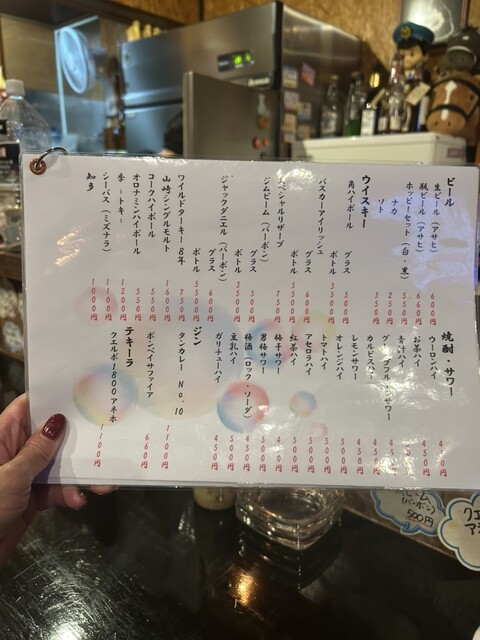 ビール
生ビール(アサヒ) 600円
瓶ビール(アサヒ) 660円
ホッピーセット(白・黒) 550円
ナカ 250円
ソト 350円
ウイスキー
角ハイボール グラス 500円
ボトル 3500円
バスカーアイリッシュ グラス 600円
ボトル 3500円
スペシャルリザーブ 750円
ジムビーム(バーボン) グラス 500円
ボトル 3500円
ジャックダニエル(バーボン) グラス
ボトル 5500円
ワイルドターキー8年 750円
山崎シングルモルト 1600円
コークハイボール 550円
オロナミンハイボール 550円
季-トキ- 1200円
シーバス(ミズナラ) 1100円
知多 1000円
焼酎・サワー
ウーロンハイ 450円
お茶ハイ 450円
青汁ハイ 450円
サワー 450円
カルピスハイ 450円
レモンサワー 450円
オレンジハイ 500円
トマトハイ 500円
アセロラハイ 500円
紅茶ハイ 500円
梅干サワー 450円
男梅サワー 450円
梅酒(ロック・ソーダ) 450円
豆乳ハイ 500円
ガリチューハイ 450円
ジン
タンカレー No.10 1100円
ボンベイサファイア 660円
テキーラ
クエルボ1800アネホ 1100円
(バーボン)
500円